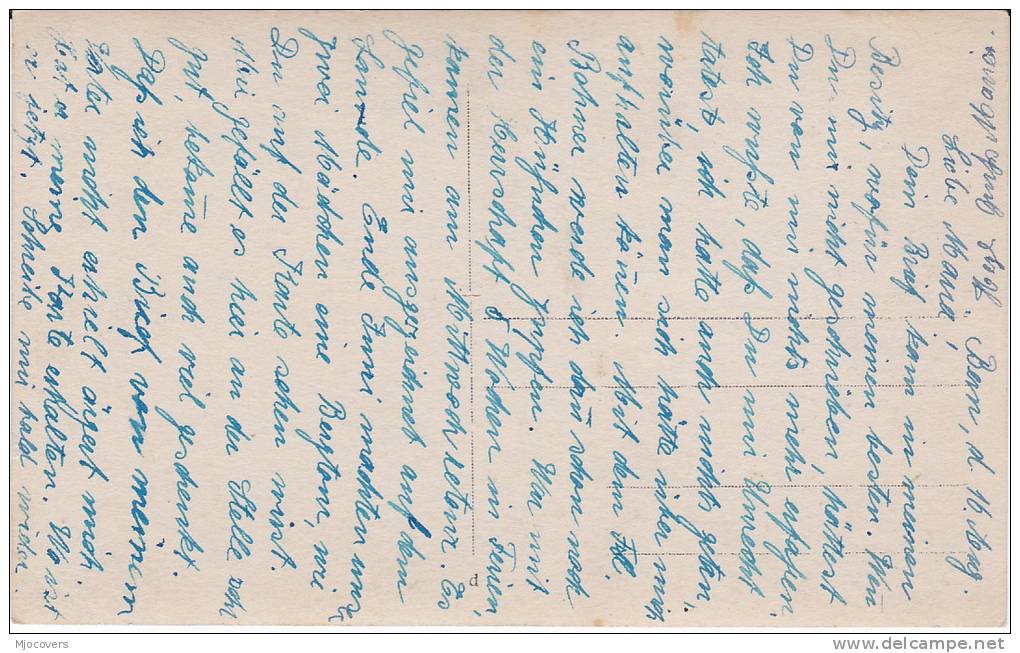 Bern, d. 16. Aug.
Liebe Marie,
Dein Brief kam in meinen
Besitz, wofür meinen besten. Wen̄
Du mir nicht geschrieben, hättest
Du von mir nichts mehr erfahren.
Ich wusste, dass Du mir Unrecht
tatest, ich hatte auch nichts getan,
worüber man sich hätte über mich
aufhalten kön̄en. Mit dem Frl.
werde ich dan̄ schon noch
ein Hühnchen rupfen. War mit
der Herrschaft 5 Wochen in Ferien,
kamen am Mittwoch retour. Es
gefiel mir ausgezeichnet auf dem
Lan-de. Ende Juni machten unser
zwei Mädchen eine Bergtour, wie
Du auf der Karte sehen wirst.
Mir gefällt es hier an der Stelle recht
gut, bekam̄e auch viel geschenkt.
Dass ich den Brief von meinem
nicht erhielt ärgert mich
Hat er meine Karte erhalten. Wo ist
er jetzt. Schreibe mir bald wieder.
d
Mjocovers
delcampe.net